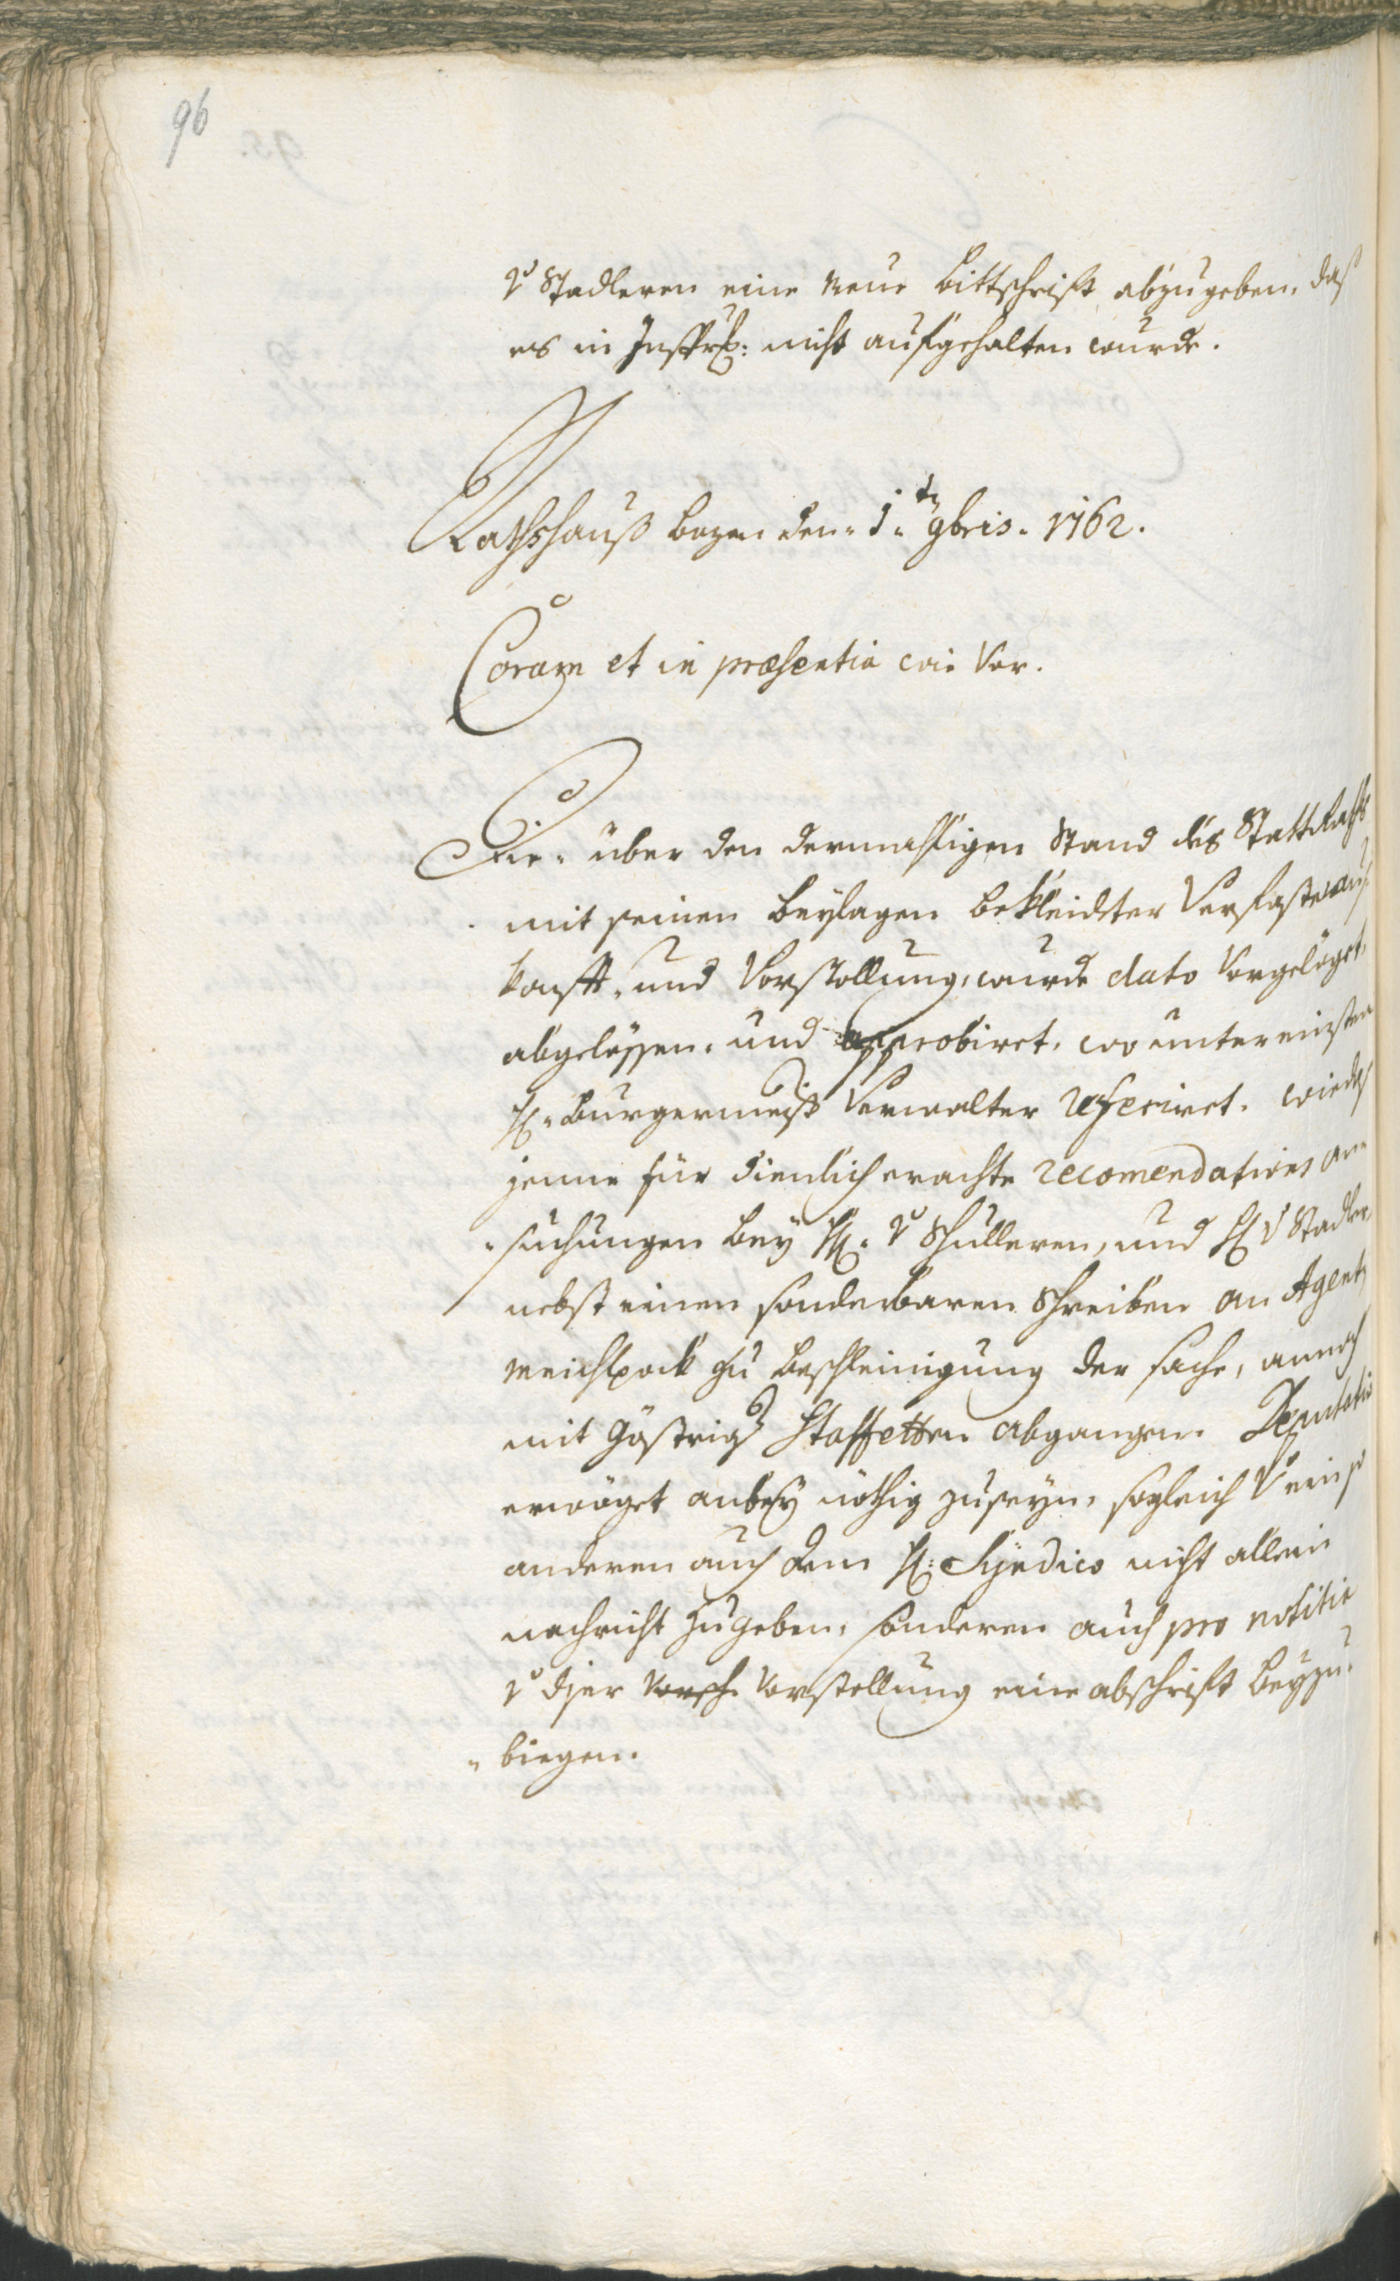 96
v Stadleren eine neue bittschrift abzugeben, daß
es in Insprg: nicht aufgehalten wurde.
Rathshauß bozen den 1.tn 9bris. 1762.
Coram et in præsentia wie Vor.
Die über den dermahligen Stand des Stattrahts
mit seinen beylagen bekleidter Verfaste aus-
konft, und Vorstellung, wurde dato Vorgelöget,
abgelössen, und approbiret, wo unter einsten
H: burgermeist Verwalter referiret, wie daß
jenne für dienlich erachte recomendations an-
suchungen bey H: v Schulleren, und H: v Stadler
nebst einen sonderbaren Schreiben an Agent
Weichlpock zu beschleinigung der sache, annoch
mit göstrigr Staffetten abgangen. Deputatio
erwöget anbey nöthig zuseyn, sogleich V ein so
anderen auch dem H: Syndico nicht allein
nachricht zugeben, sonderen auch pro notitia
v diser Vorsch Vorstellung eine abschrift beyzu-
biegen.